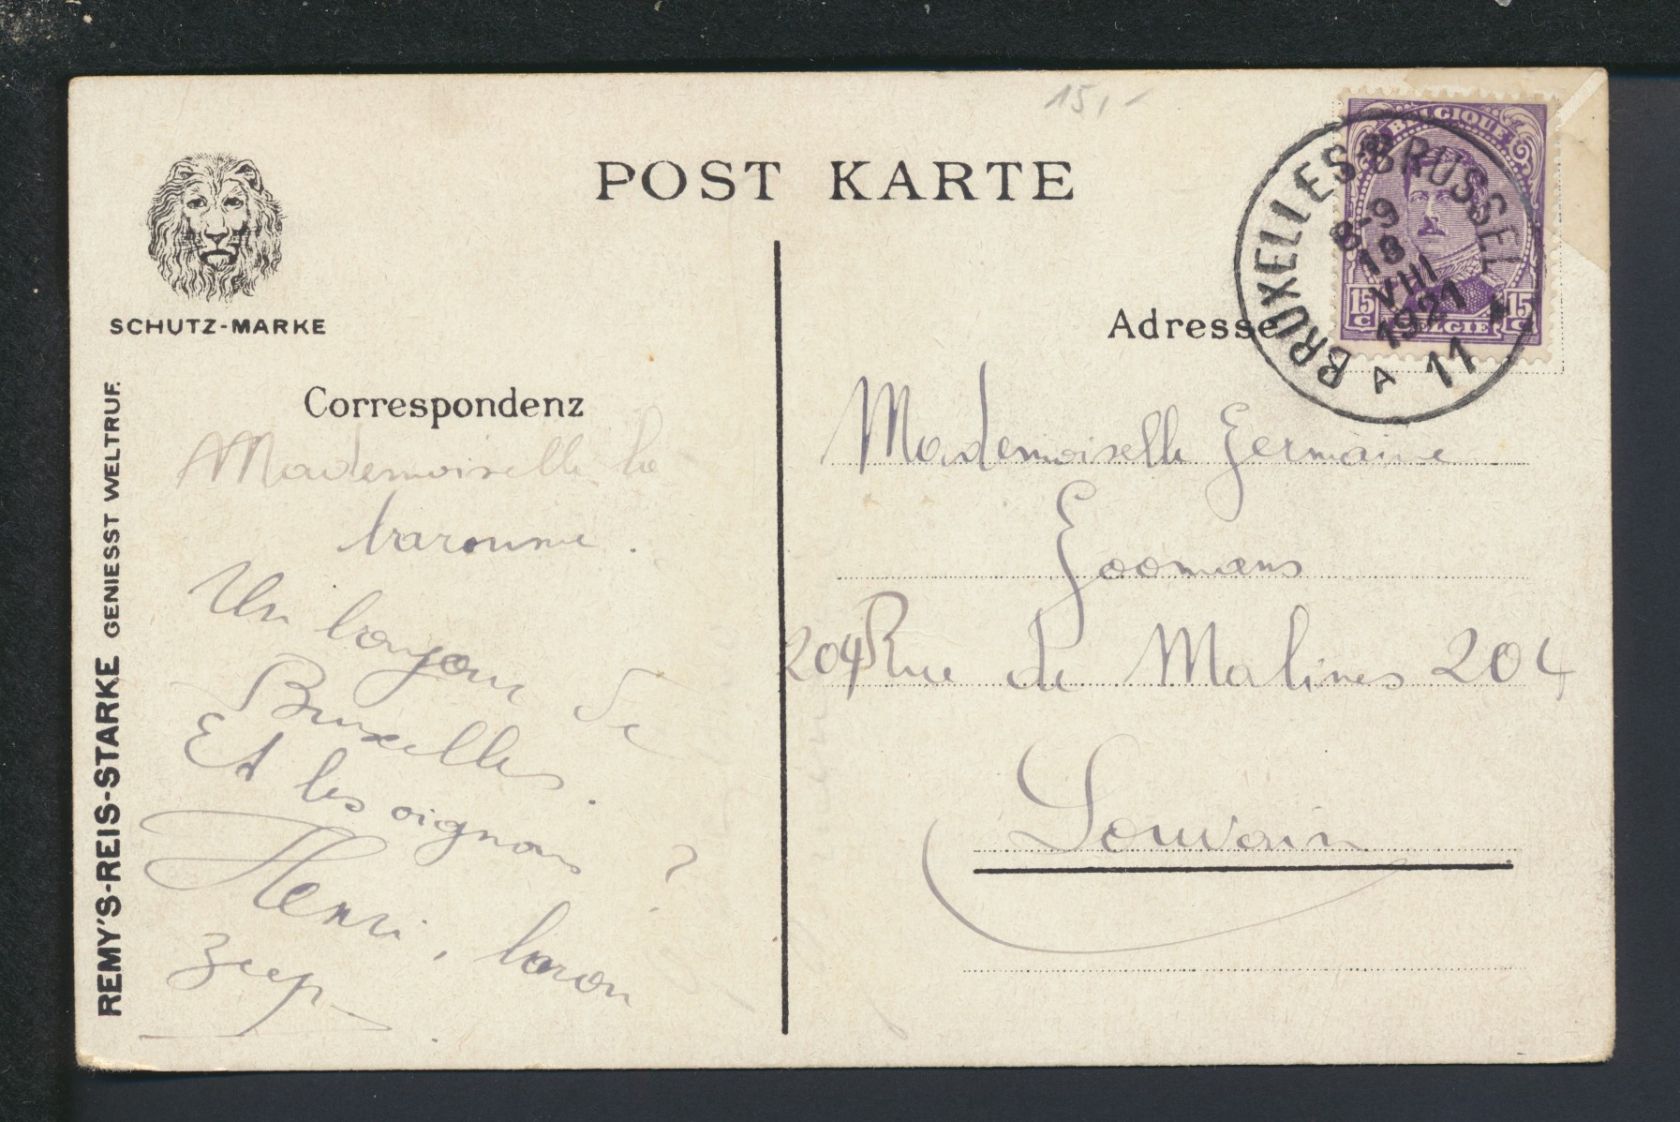 15,-
POST KARTE
SCHUTZ-MARKE
REMY'S-REIS-STARKE GENIESST WELTRUF.
Correspondenz
Mademoiselle la
baronne.
Un bonjour de
Bruxelles.
Et les oignons ?
Henri, baron
Zeep
Adresse
BELGIQUE
15 C BELGIE 15 C
BRUXELLES BRUSSEL
8-9
18
VIII
1921
A 11
Mademoiselle Germaine
Goomans
204 Rue de Malines 204
Louvain